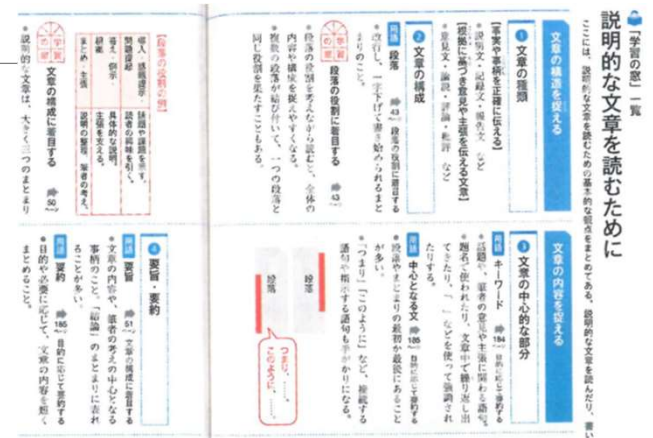 「学習の窓」一覧
説明的な文章を読むために
ここには、説明的な文章を読むための基本的な観点をまとめてある。説明的な文章を読んだり、書い
文章の構造を捉える
1 文章の種類
【事実や事柄を正確に伝える】
・説明文・記録文・報告文 など
【根拠に基づき意見や主張を伝える文章】
・意見文・論説・評論・批評 など
2 文章の構成
用語 段落 43 段落の役割に着目する
・改行し、一字下げて書き始められるまと
まりのこと。
学習の窓 段落の役割に着目する 43
・段落の役割を考えながら読むと、全体の
内容や構成を捉えやすくなる。
・複数の段落が結び付いて、一つの段落と
同じ役割を果たすこともある。
【段落の役割の例】
導入・話題提示 話題や課題を示す。
問題提起 読者の興味を引く。
答え・例示 具体的な説明。
根拠 主張を支える。
まとめ・主張 説明の整理、筆者の考え。
学習の窓 文章の構成に着目する 50
・説明的な文章は、大きく三つのまとまり
文章の内容を捉える
3 文章の中心的な部分
用語 キーワード 184 目的に応じて要約する
・話題や、筆者の意見や主張に関わる語句。
・題名で使われたり、文章中で繰り返し出
てきたり、「 」などを使って強調され
たりする。
用語 中心となる文 185 目的に応じて要約する
・段落やまとまりの最初か最後にあること
が多い。
・「つまり」「このように」など、接続する
語句や指示する語句も手がかりになる。
段落
段落
つまり、……。
このように、……。
4 要旨・要約
用語 要旨 51 文章の構成に着目する
・文章の内容や、筆者の考えの中心となる
事柄のこと。「結論」のまとまりに表れ
ることが多い。
用語 要約 185 目的に応じて要約する
・目的や必要に応じて、文章の内容を短く
まとめること。